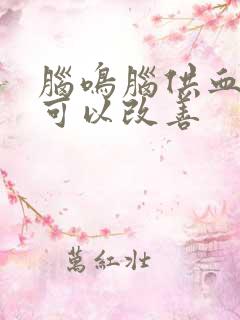 腦鳴腦供血
可以改善
萬紅壯